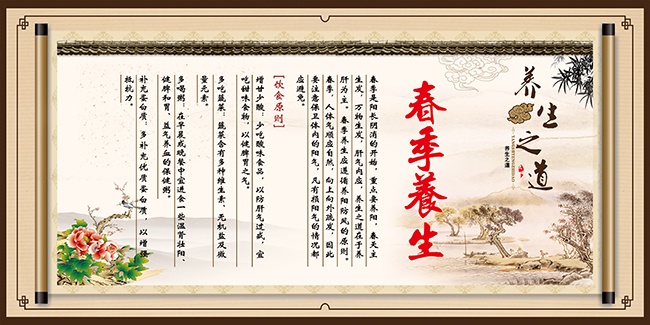 养生之道
养生之道
春季養生
春季是阳长阴消的开始，重点要养阳，春天主
生发，万物生发，肝气内应，养生之道在于养
肝为主。春季养生应遵循养阳防风的原则。
春季，人体气顺应自然，向上向外疏发，因此
要注意保卫体内的阳气，凡有损阳气的情况都
应避免。
[饮食原则]
增甘少酸：少吃酸味食品，以防肝气过戒，宜
吃甜味食物，以健脾胃之气。
多吃蔬菜：蔬菜含有多种维生素、无机盐及微
量元素。
多喝粥：在早晨或晚餐中宜进食一些温肾壮阳、
健脾和胃、益气养血的保健粥。
补充蛋白质：多补充优质蛋白质，以增强
抵抗力。